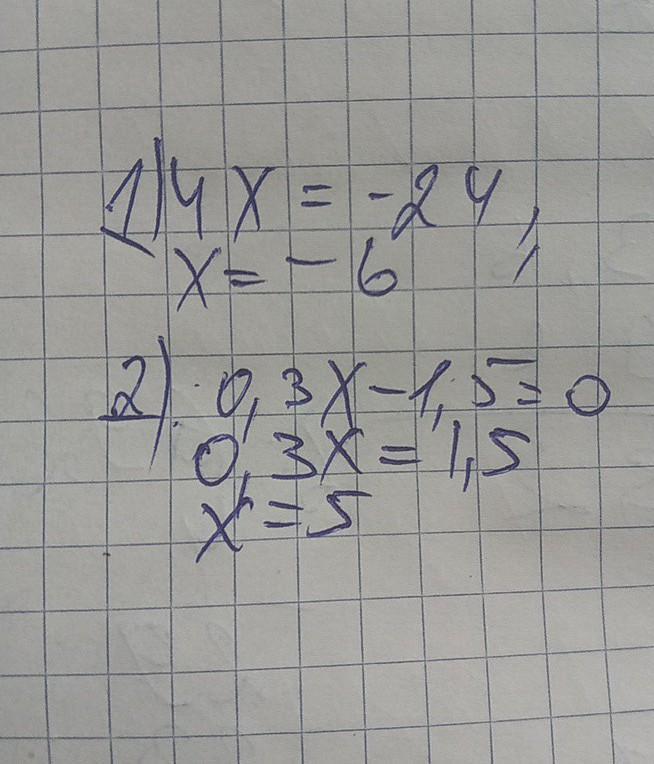 1) 4x = -24,
x = - 6
2) 0,3x - 1,5 = 0
0,3x = 1,5
x = 5